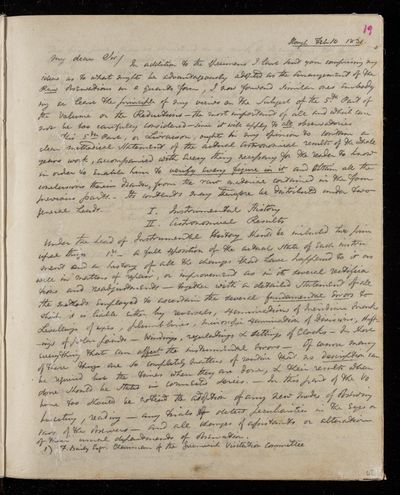 19
Slough Feb. 10 1831
My dear Sir/
In addition to the specimens I have sent you comprising my
ideas as to what might be advantageously adopted as the arrangement of the
Raw Observations in a printed form, I now forward similar ones embody
ing in leave the principle of my views on the subject of the 5th Part of
the volume or the Reductions – the most important of all and which can
not be too carefully considered since it will apply to all observatories
This 5th Part or Livraison, ought in my opinion to contain a
clear methodical statement of the actual astronomical results of the whole
years work, accompanied with every thing necessary for the reader to know
in order to enable him to verify every figure in it and obtain all the
conclusions therein deduced, from the raw material contained in the four
previous parts. – Its contents may therefore be distributed under two
general heads
I. Instrumental History
II. Astronomical Results
Under the head of Instrumental History should be included two prin
cipal things 1st – a full exposition of the actual state of each instru
ment and a history of all the changes that have happened to it as
well in matters of repair, or improvement as in its several rectifica
tions and readjustments – together with a detailed statement of all
the methods employed to ascertain the several fundamental errors to
which it is liable either by reversals, determinations of meridian mark
levellings of axes, plumb lines, micrometer examination of divisions, shift
ings of polar points – Windings, regulatings & settings of Clocks – In short
everything that can affect the instrumental errors – Of course many
of these things are so completely matters of routine that no description can
be required but the times when they are done, & their results when
done should be stated in connected series. – In this part of the Vo
lume too should be noticed the adoption of any new modes of observing
bisecting, reading – any trials to detect peculiarities in the Eyes or
Ears of the observers – and all changes of assistants or alteration
of their usual departments of observation.
1) F. Baily Esqr. Chairman of the Greenwich Visitation Committee